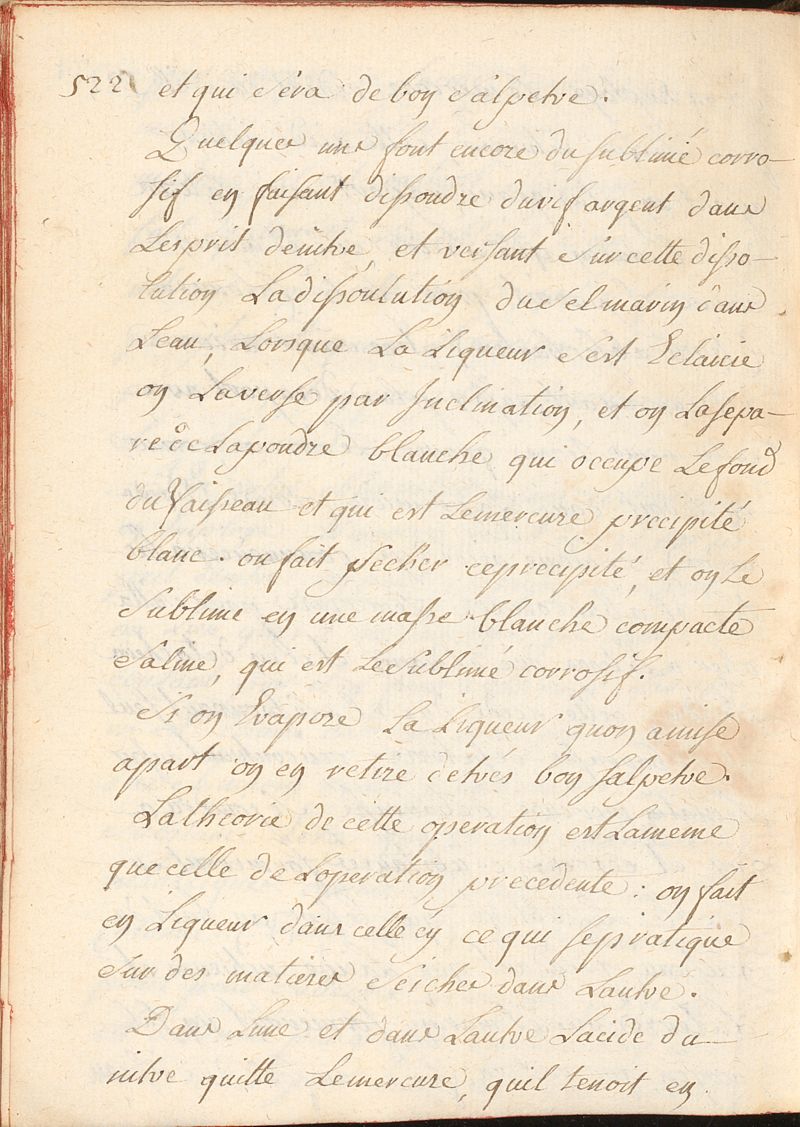 522 et qui séra de bon salpetre.
Quelques uns font encore du sublimé corro-
sif en faisant dissoudre du vif argent dans
L'esprit de nitre, et versant sur cette disso-
lution La dissoulution du sel marin dans
L'eau, Lorsque La Liqueur s'est Eclaircie
on La verse par Inclination, et on La sepa-
re de La poudre blanche qui occupe Le fond
du Vaisseau et qui est Le mercure precipité
blanc. on fait sécher ce precipité, et on Le
Sublime en une masse blanche compacte
Saline, qui est Le Sublimé corrosif.
Si on Evapore La Liqueur quon a mise
apart on en retire de trés bon salpetre.
La theorie de cette operation est La meme
que celle de Loperation precedente: on fait
en Liqueur dans celle cy ce qui se pratique
sur des matieres seiches dans Lautre.
Dans Lune et dans Lautre Lacide du
nitre quitte Le mercure, quil tenoit en